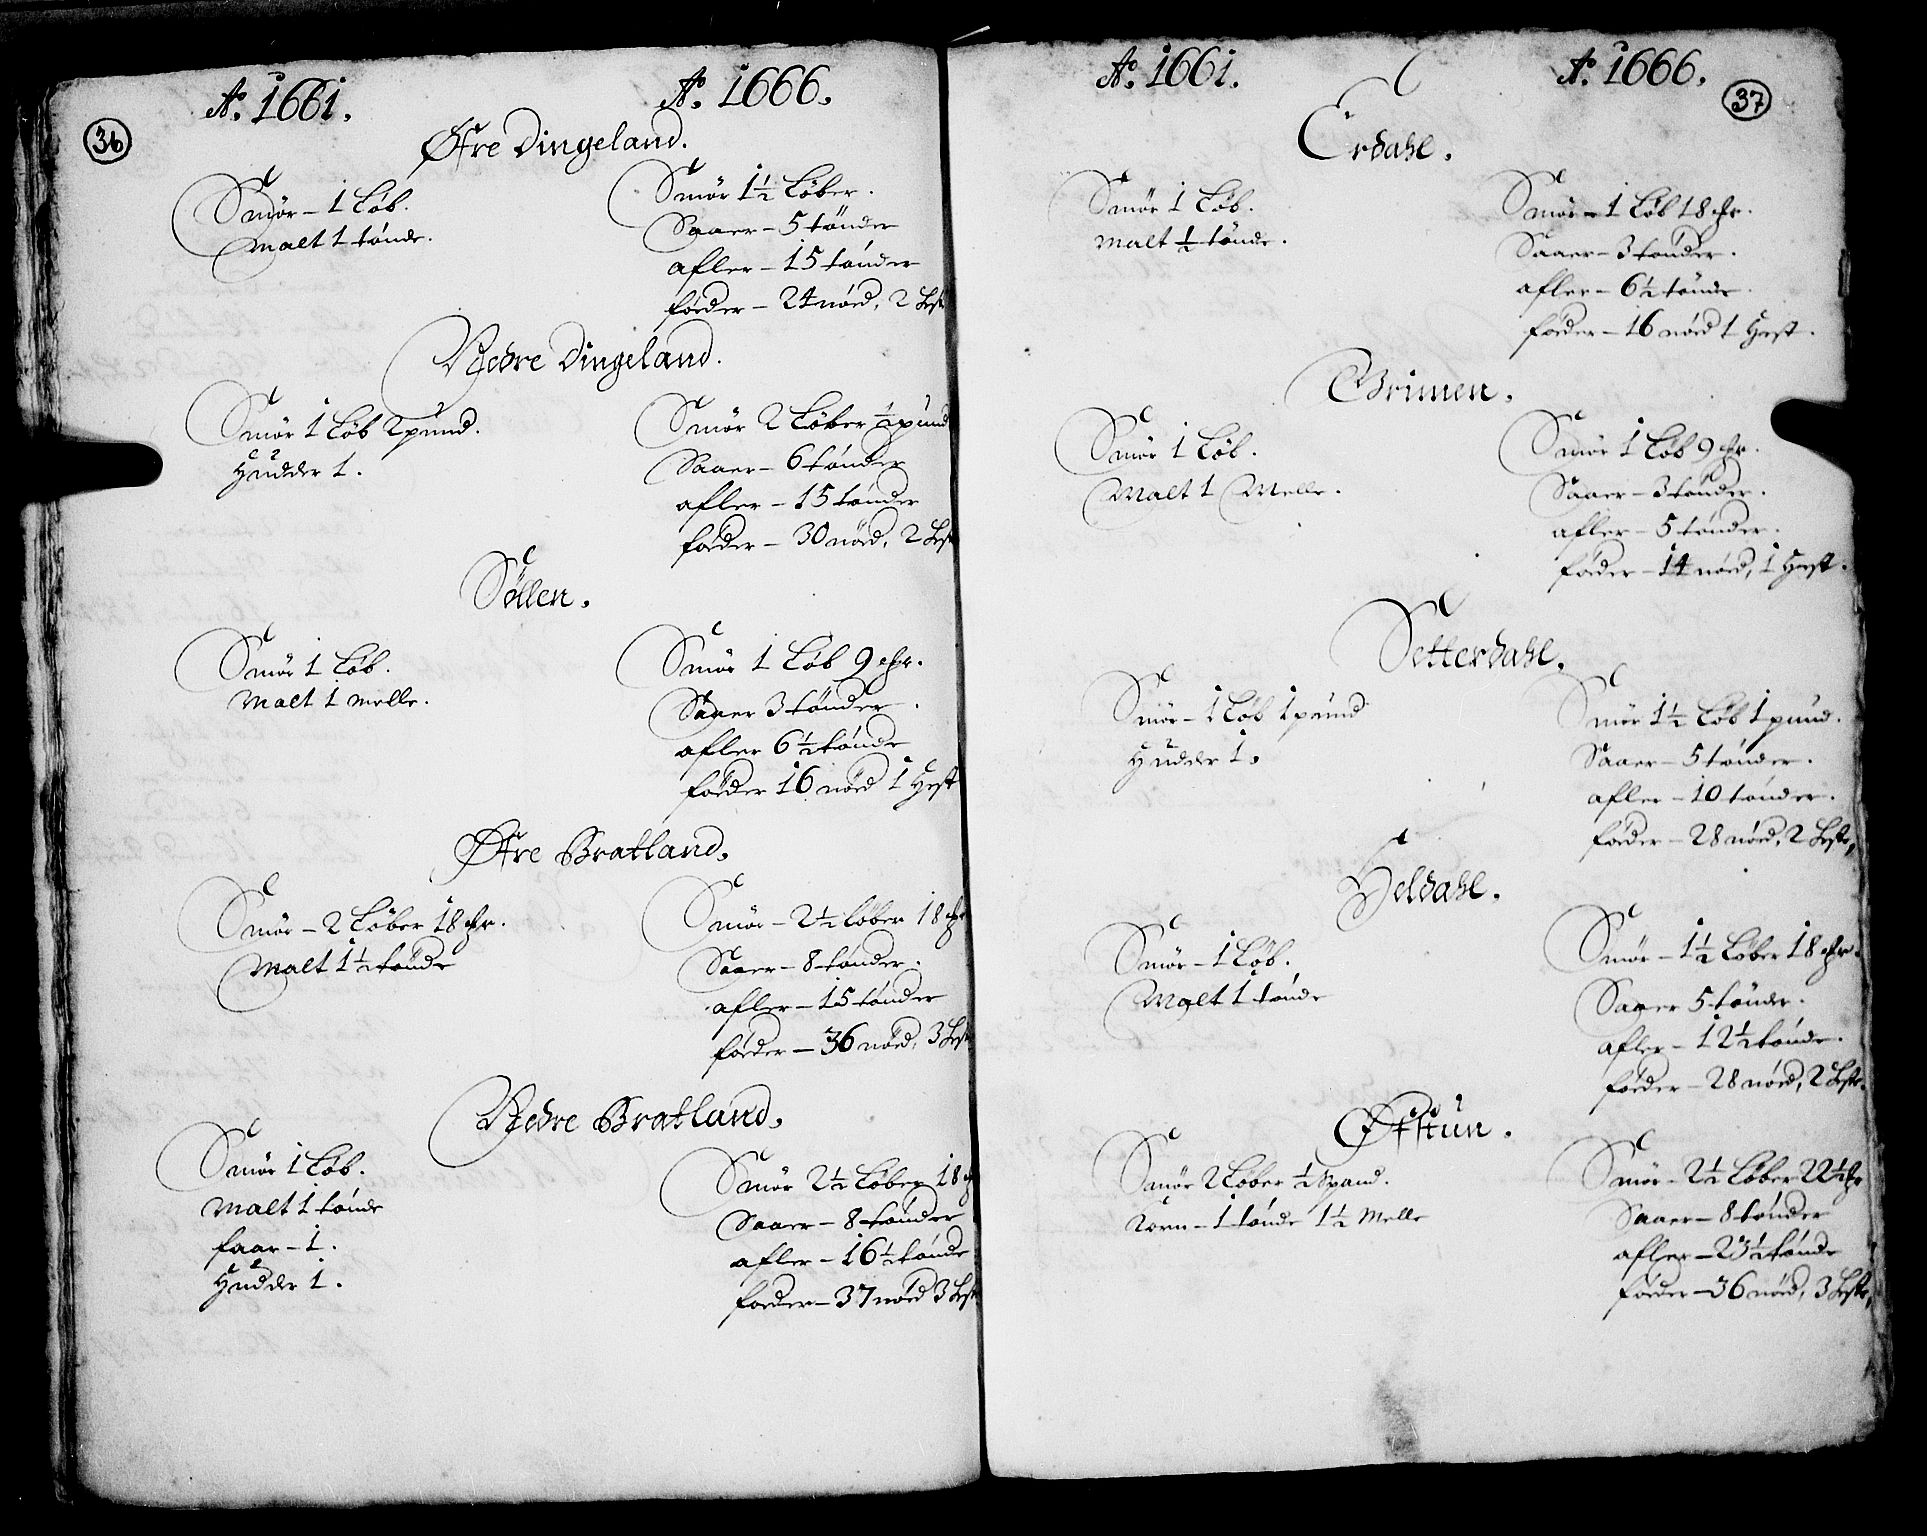 36
Aº. 1661. Aº. 1666.
Øfre Dingeland.
Smör – 1 Löb.
Malt 1 tönde.
Smör 1½ Löber.
Saaer – 5 tönder
afler – 15 tönder
föder – 24 nöed, 2 Heste
Nedre Dingeland.
Smör 1 Löb 2 pund.
Hudder 1.
Smör 2 Löber ½ pund
Saaer – 6 tönder
afler – 15 tönder
föder – 30 nöed, 2 Hest
Söllen.
Smör 1 Löb.
Malt 1 melle.
Smör 1 Löb 9 mkr.
Saaer 3 tönder.
afler 6½ tönde
föder 16 nöed 1 Hest
Øfre Bratland.
Smör – 2 Löber 18 mkr.
Malt 1½ tönde
Smör – 2½ Löber 18 mkr
Saaer – 8 tönder.
afler – 15 tönder
föder – 36 nöed, 3 Hest
Nedre Bratland.
Smör 1 Löb.
Malt 1 tönde
faar – 1.
Hudder 1.
Smör 2½ Löber 18
Saaer – 8 tönder
afler – 16½ tönde
föder – 37 nöed 3 Hest
37
Aº. 1661. Aº. 1666.
Erdahl.
Smör 1 Löb.
Malt ½ tönde.
Smör – 1 Löb 18 mkr.
Saaer – 3 tönder.
afler – 6½ tönde.
föder – 16 nöed 1 Hest.
Brimen.
Smör 1 Löb.
Malt 1 Melle.
Smör 1 Löb 9 mkr.
Saaer – 3 tönder.
afler – 5 tönder.
föder – 14 nöed, 1 Hest.
Setterdahl.
Smör – 1 Löb 1 pund
Hudder 1.
Smör 1½ Löb 1 pund.
Saaer – 5 tönder.
afler – 10 tönder.
föder – 28 nöed, 2 Heste,
Heldahl.
Smör – 1 Löb.
Malt 1 tönde
Smör – 1½ Löber 18 mkr.
Saaer 5 tönder.
afler – 12½ tönde.
föder – 28 nöed, 2 Heste.
Øfstun.
Smör 2 Löber ½ Spand.
Korn – 1 tönde 1½ Melle
Smör – 2½ Löber 22½ mkr
Saaer – 8 tönder
afler – 23½ tönde
föder – 36 nöed, 3 Heste,